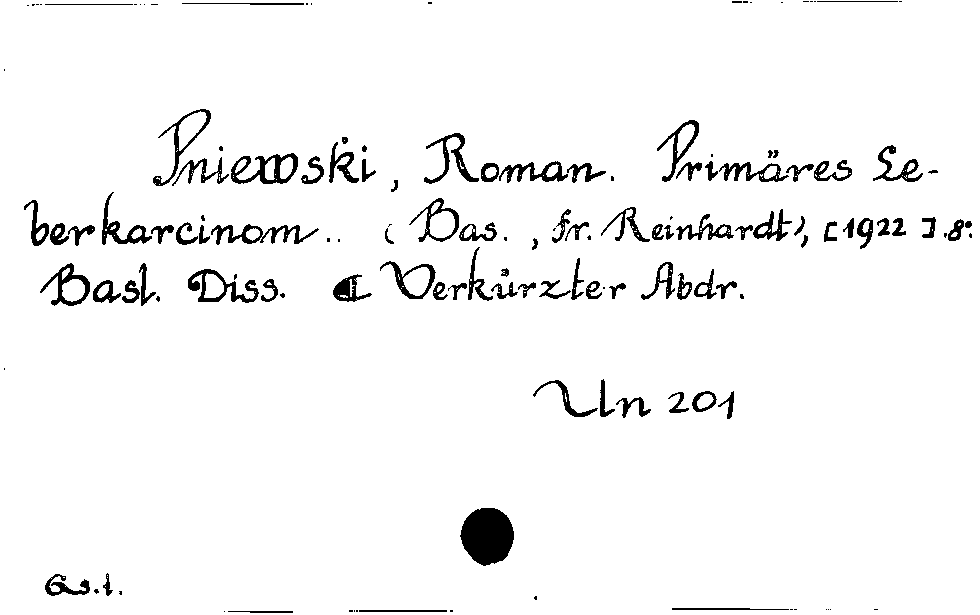 Pniewski, Roman. Primäres Le-
berkarcinom.. (Bas., Fr. Reinhardt), [1922]. 8°.
Basl. Diss. Verkürzter Abdr.
Un 201